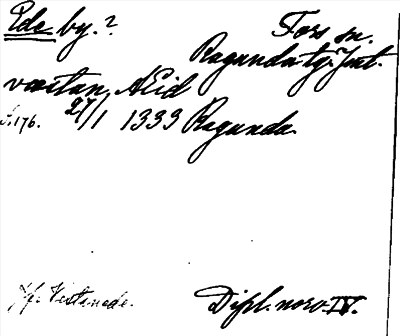 Ede by.?
Fors sn.
Ragunda tg. Jmtl.
væstan Æid
s. 176. 27/1 1333 Ragunda.
Jfr Västanede.
Dipl. norv. IV.